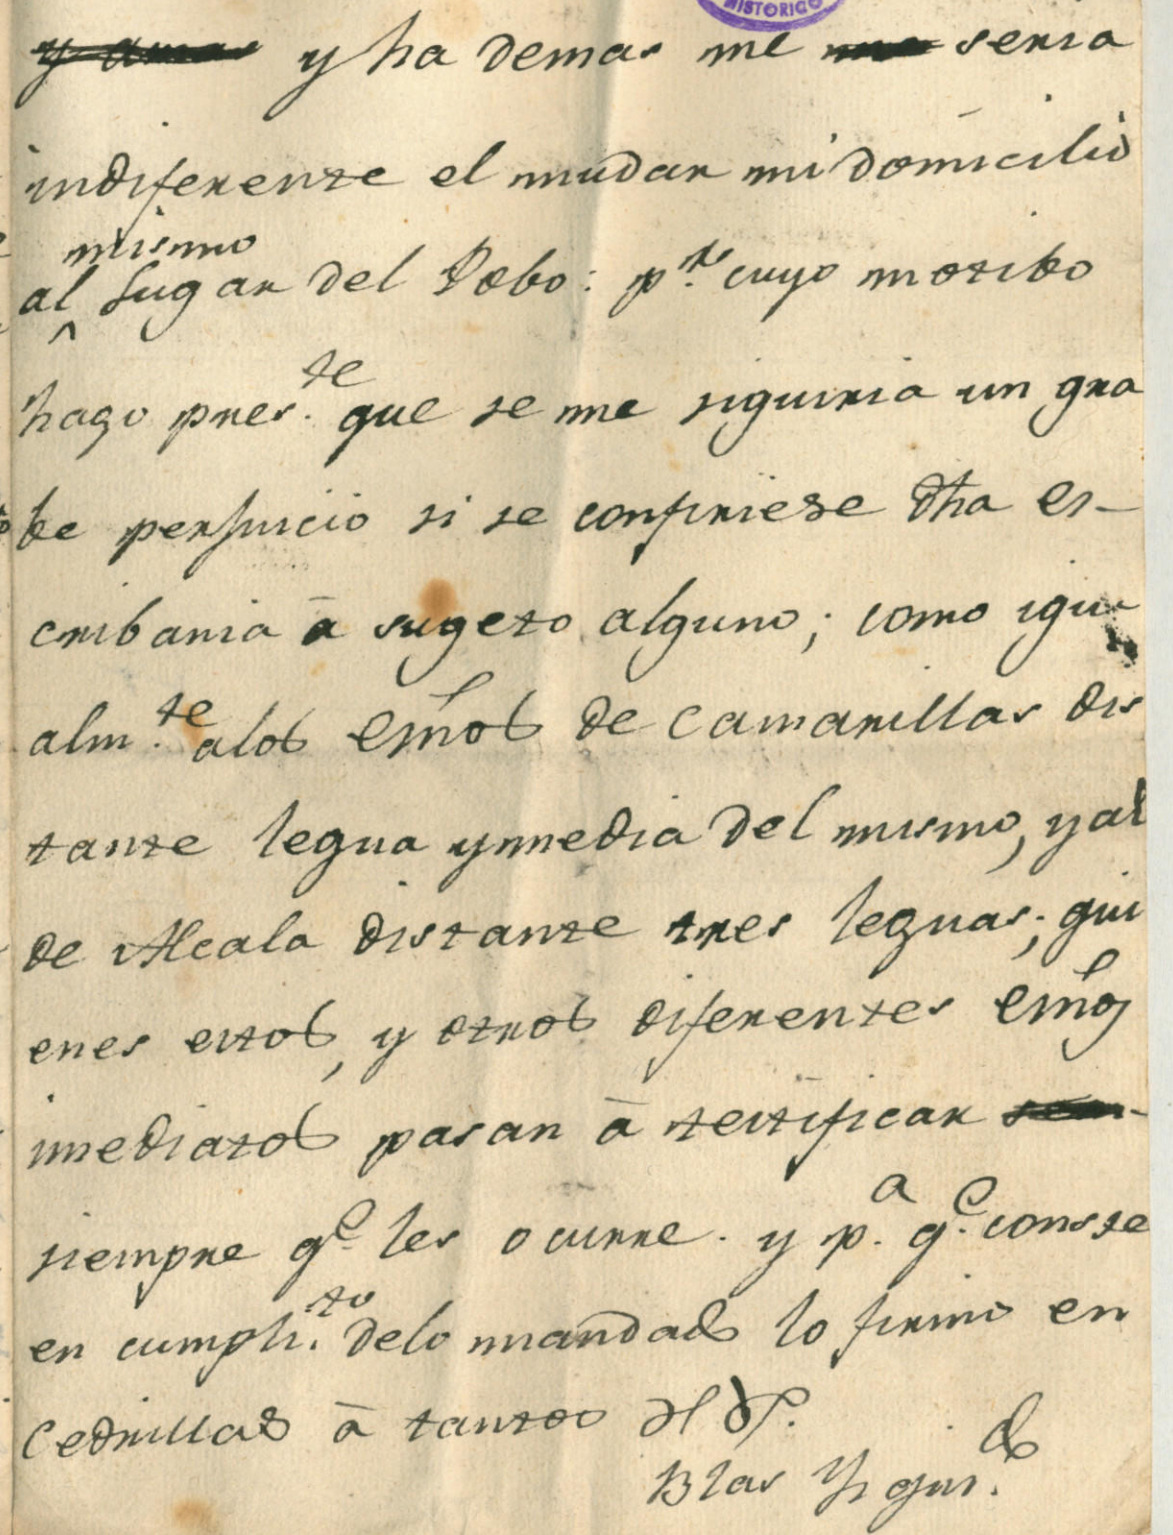 HISTORICO
y ha demas me seria
indiferente el mudar mi domicilio
mismo
al lugar del Pobo: p.r cuyo motibo
hago pres.te que se me siguiria un gra
be perjuicio si se confiriese dha es-
cribania â sugeto alguno; como igu
alm.te alos essnos de Camarillas dis
tante legua ymedia del mismo, y al
de Alcala distante tres leguas; qui
enes estos, y otros diferentes essnos
imediatos pasan â testificar
siempre q.e les ocurre. y p.a q.e conste
en cumpli.to delo mandado lo firmo en
Cedrillas â tantos
Blas